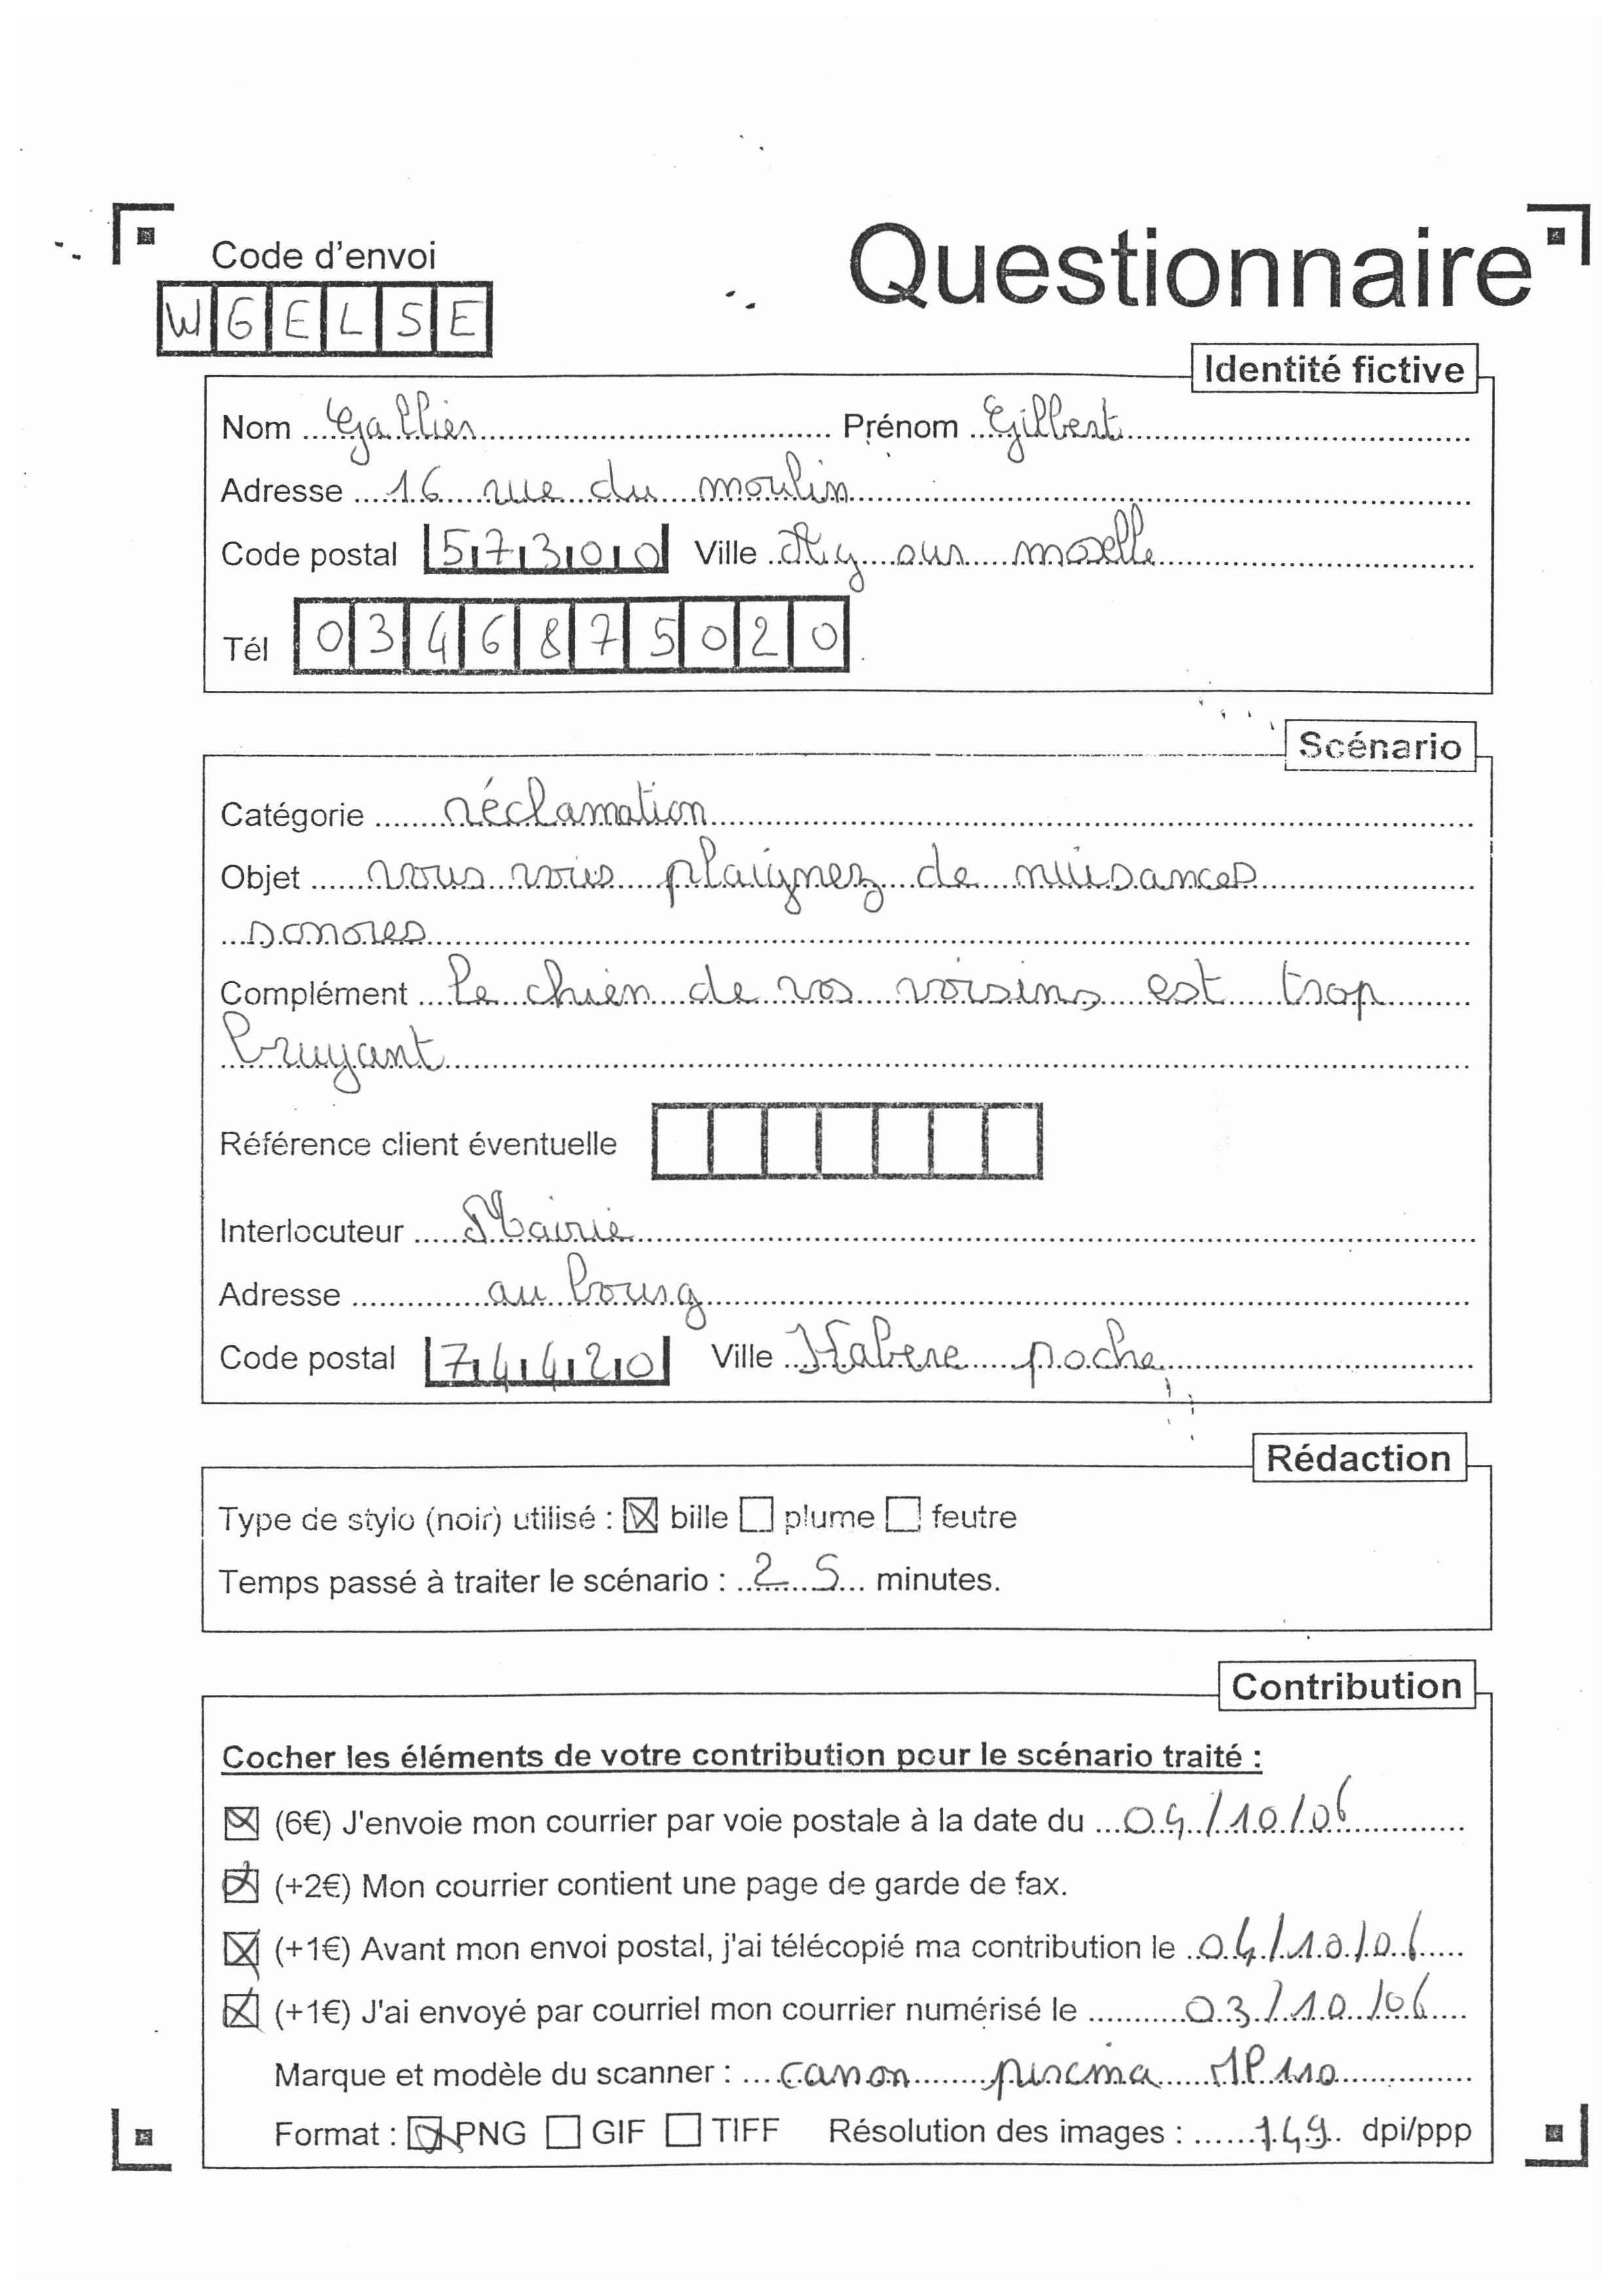 Code d'envoi
Questionnaire
WGELSE
Identité fictive
Nom Gallier Prénom Gilbert
Adresse 16 rue du moulin
Code postal 57300 Ville Ay sur moselle
Tél 0346875020
Scénario
Catégorie réclamation
Objet vous vous plaignez de nuisances
sonores
Complément le chien de vos voisins est trop
bruyant
Référence client éventuelle
Interlocuteur Mairie
Adresse au bourg
Code postal 74420 Ville Habere poche
Rédaction
Type de stylo (noir) utilisé : bille plume feutre
Temps passé à traiter le scénario : 25 minutes.
Contribution
Cocher les éléments de votre contribution pour le scénario traité :
(6€) J'envoie mon courrier par voie postale à la date du 04/10/06
(+2€) Mon courrier contient une page de garde de fax.
(+1€) Avant mon envoi postal, j'ai télécopié ma contribution le 04/10/06
(+1€) J'ai envoyé par courriel mon courrier numérisé le 03/10/06
Marque et modèle du scanner : canon pixma MP110
Format : PNG GIF TIFF Résolution des images : 149 dpi/ppp